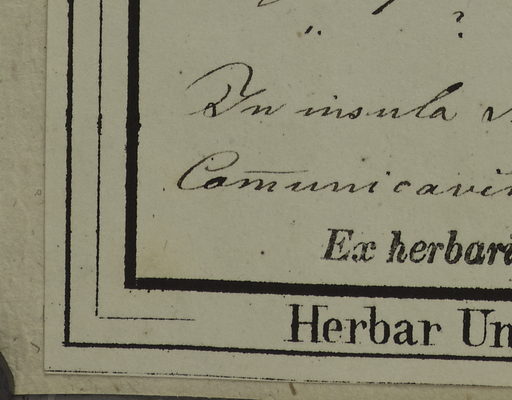 In insula
Com̄unicavi
Ex herbari
Herbar Un